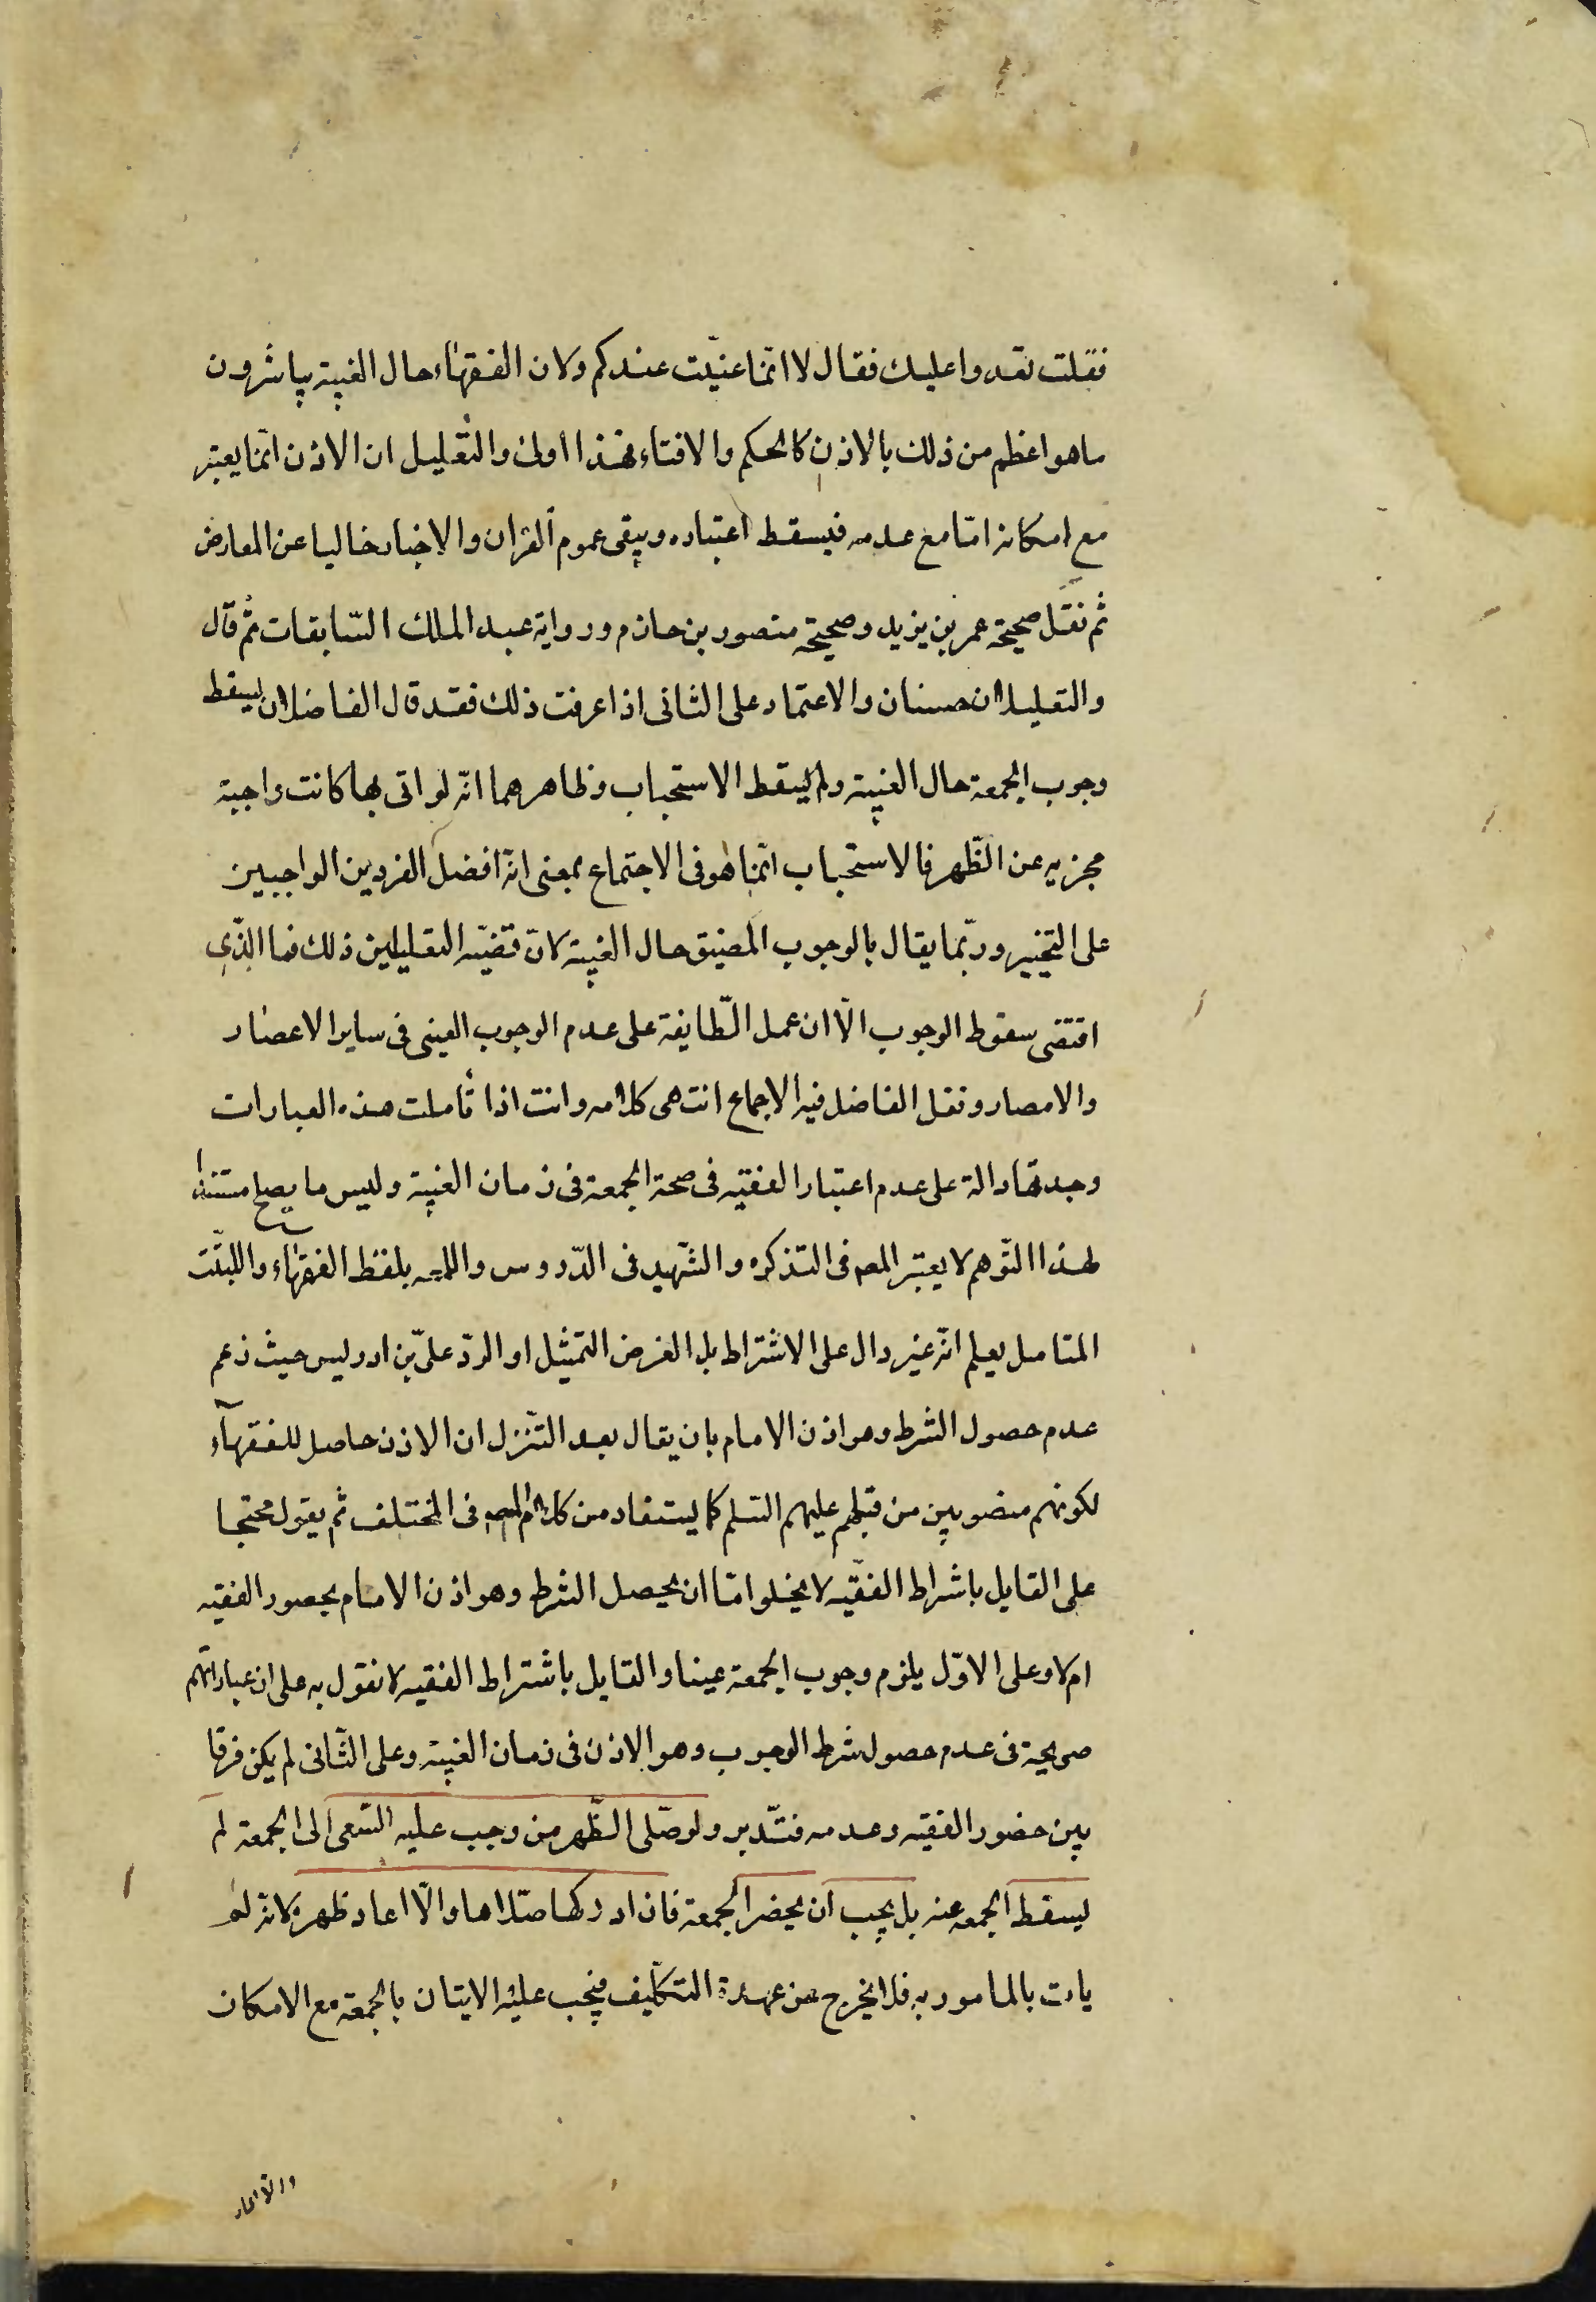 فقلت نغدوا عليك فقال لا انّما عنيت عندكم ولان الفقهاء حال الغيبة يباشرون
ما هو اعظم من ذلك بالاذن كالحكم والافتاء فهذا اولى والتعليل ان الاذن انما يعتبر
مع امكانه امّا مع عدمه فيسقط اعتباره ويبقى عموم القران والاخبار خاليا عن المعارض
ثم نقل صحيحة عمر بن يزيد وصحيحة منصور بن حازم ورواية عبد الملك السّابقات ثم قال
والتعليلان حسنان والاعتماد على الثانى اذا عرفت ذلك فقد قال الفاضلان ليسقط
وجوب الجمعة حال الغيبة ولم يسقط الاستحباب وظاهرهما انّه لو اتى بها كانت واجبة
مجزيه عن الظّهر فالاستحباب انّما هو فى الاجتماع بمعنى انّه افضل الفردين الواجبين
على التخيير وربّما يقال بالوجوب المضيق حال الغيبة لانّ قضيّه التعليلين ذلك فما الّذى
اقتضى سقوط الوجوب الّا ان عمل الطّايفة على عدم الوجوب العينى فى ساير الاعصار
والامصار ونقل الفاضل فيه الاجماع انتهى كلامه وانت اذا تأملت هذه العبارات
وجدتها دالة على عدم اعتبار الفقيه فى صحة الجمعة فى زمان الغيبة وليس ما يصلح مستندا
لهذا التّوهم لا يعتبر المصـ فى التذكره والشّهيد فى الدّروس واللمعه بلفظ الفقهاء واللبّت
المتامل يعلم انّه غير دال على الاشتراط بل الغرض التمثيل او الردّ على بن ادريس حيث زعم
عدم حصول الشرط وهو اذن الامام بان يقال بعد التنّزل ان الاذن حاصل للفقهآء
لكونهم منصوبين من قبلهم عليهم السّلم كما يستفاد من كلام المصـ فى المختلف ثم يقول محتجا
على القايل باشراط الفقيه لا يخلوا امّا ان يحصل الشرط وهو اذن الامام بحضور الفقيه
ام لا وعلى الاوّل يلزم وجوب الجمعة عينا والقايل باشتراط الفقيه لا نقول به على ان عباراتهم
صريحة فى عدم حصول شرط الوجوب وهو الاذن فى زمان الغيبة وعلى الثّانى لم يكن فرقا
بين حضور الفقيه وعدمه فتدّبر ولو صلّى الظّهر من وجب عليه السّعى الى الجمعة لم
يسقط الجمعه عنه بل يجب ان يحضر الجمعة فان ادركها صلّاها والّا اعاد ظهره لانّه لم
يات بالمامور به فلا يخرج عن عهدة التكليف فيجب عليه الاتيان بالجمعة مع الامكان